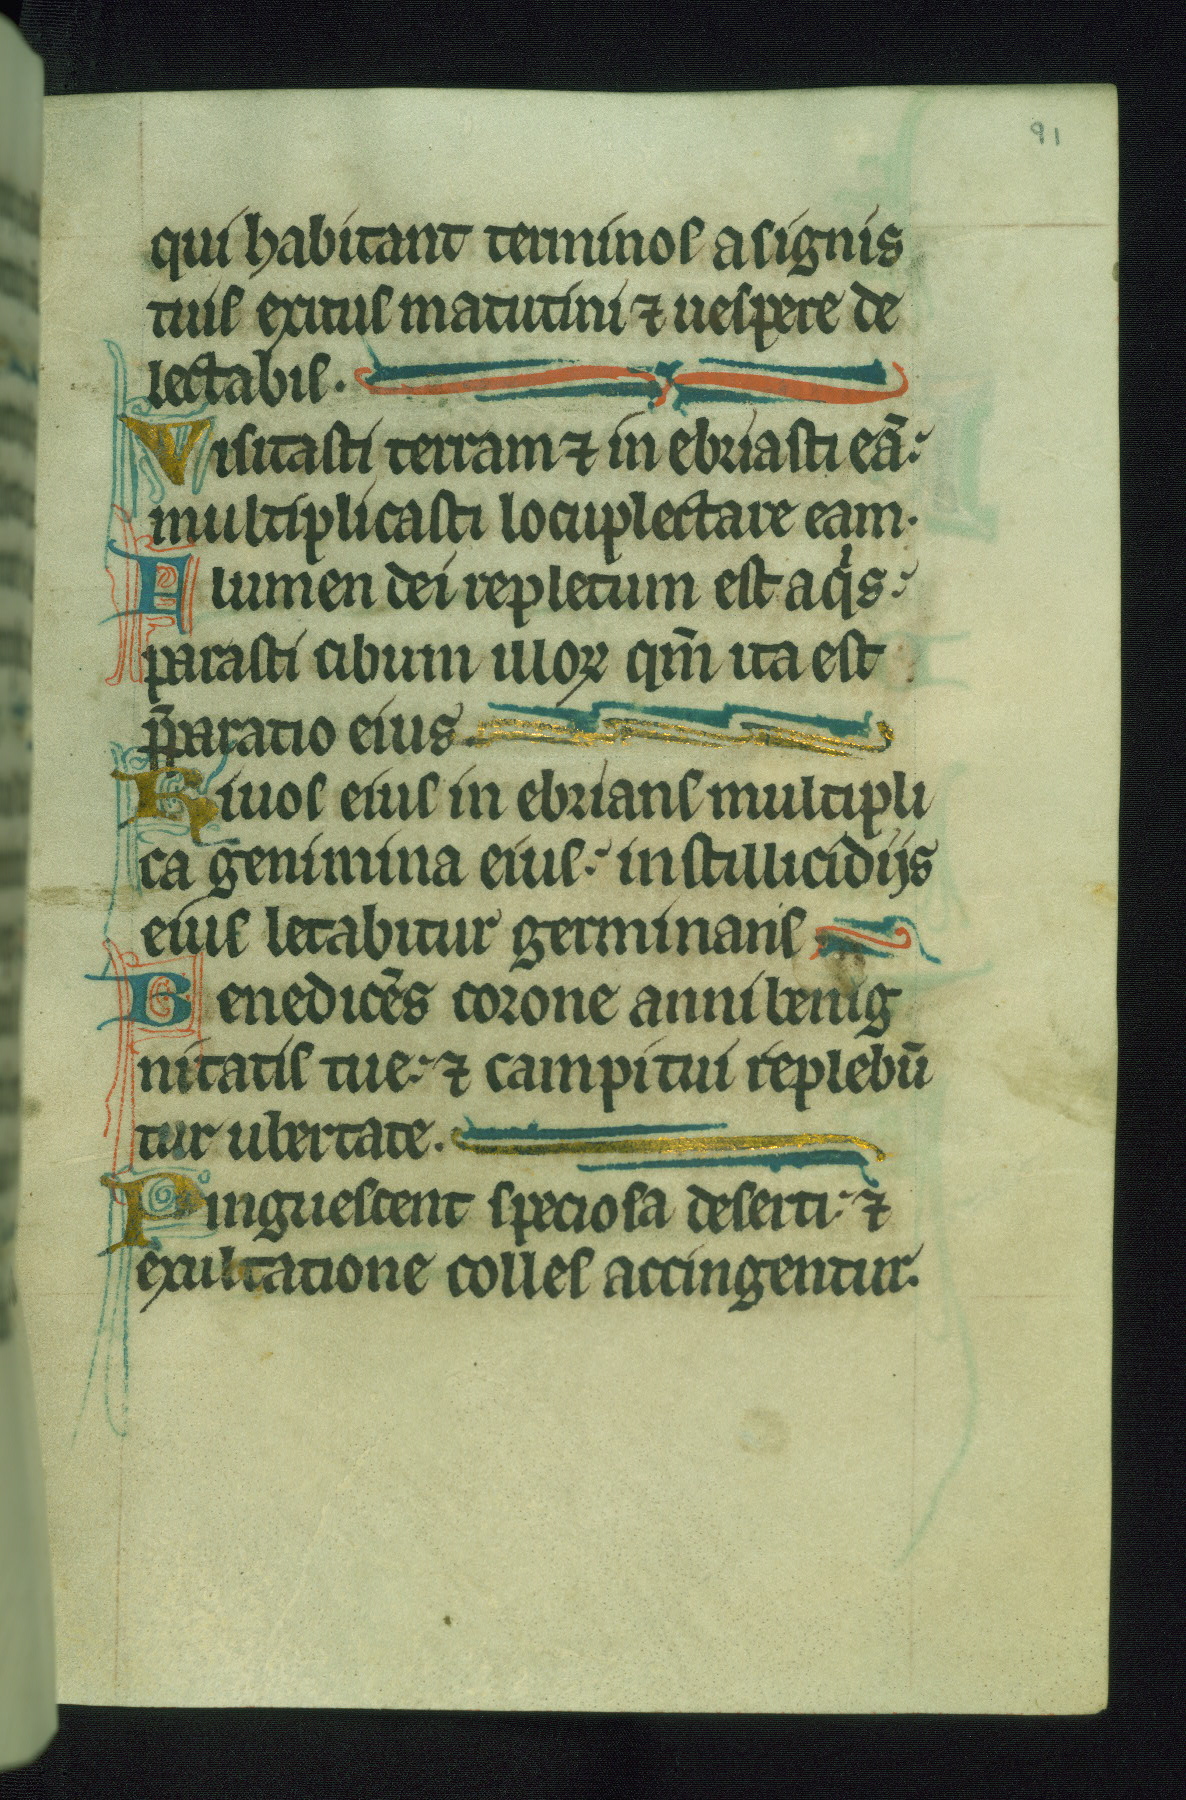 91
qui habitant terminos a signis
tuis exitus matutini ⁊ uespere de
lectabis.
Visitasti terram ⁊ in ebriasti eā:
multiplicasti locuplectare eam.
Flumen dei repletum est aqͥs:
parasti cibum illoꝝ qm̄ ita est
p̄paratio eius.
Riuos eius in ebrians multipli
ca genimina eius: in stillicidijs
eius letabitur germinans
Benedicēs corone anni benig
nitatis tue: ⁊ campi tui replebū
tur ubertate.
Pinguescent speciosa deserti: ⁊
exultatione colles accingentur.